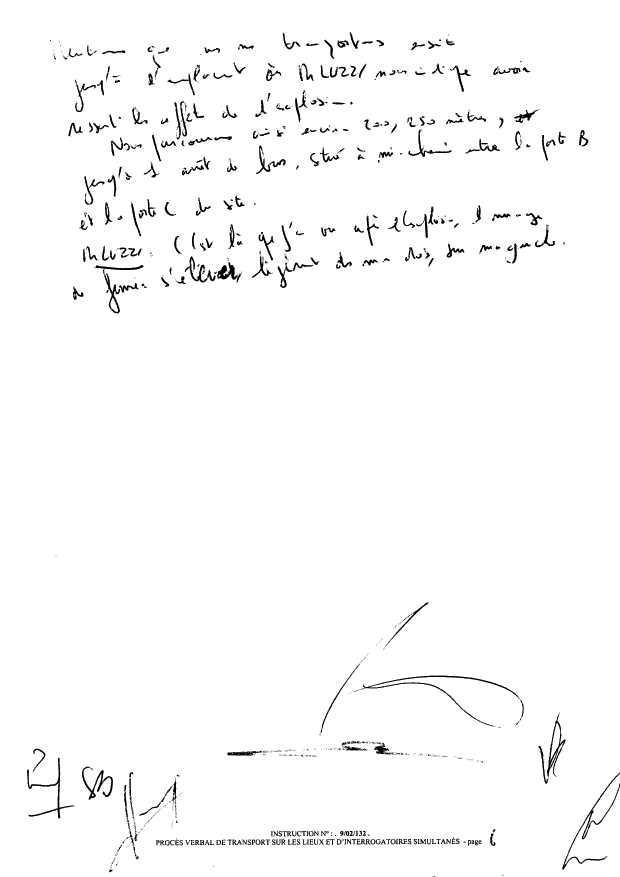 Mentionnons que nous nous transportons ensuite
jusqu'à l'emplacement où Mr LUZZI nous indique avoir
ressenti les effets de l'explosion.
Nous parcourons ainsi environ 200, 250 mètres,
jusqu'à 1 arrêt de bus, situé à mi-chemin entre la porte B
et la porte C du site.
Mr LUZZI : C'est là que j'ai vu après l'explosion, 1 nuage
de fumée s'élever, légèrement dans mon dos, sur ma gauche.
SB
INSTRUCTION N° : . 9/02/132 .
PROCÈS VERBAL DE TRANSPORT SUR LES LIEUX ET D'INTERROGATOIRES SIMULTANÉS - page 6